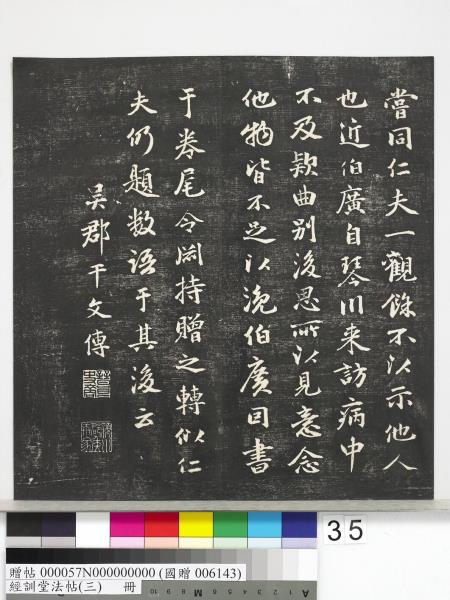 嘗同仁夫一觀餘不以示他人
也近伯廣自琴川来訪病中
不及欵曲别後思所以見意念
他物皆不足以浼伯廣因書
于券尾令閎持贈之轉似仁
夫仍題数語于其後云
吴郡干文傳
35
贈帖 000057N000000000 (國贈 006143)
經訓堂法帖(三) 冊